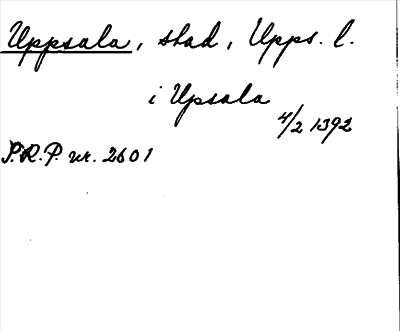 Uppsala, stad, Upps. l.
i Upsala
4/2 1392
S.R.P. nr. 2601